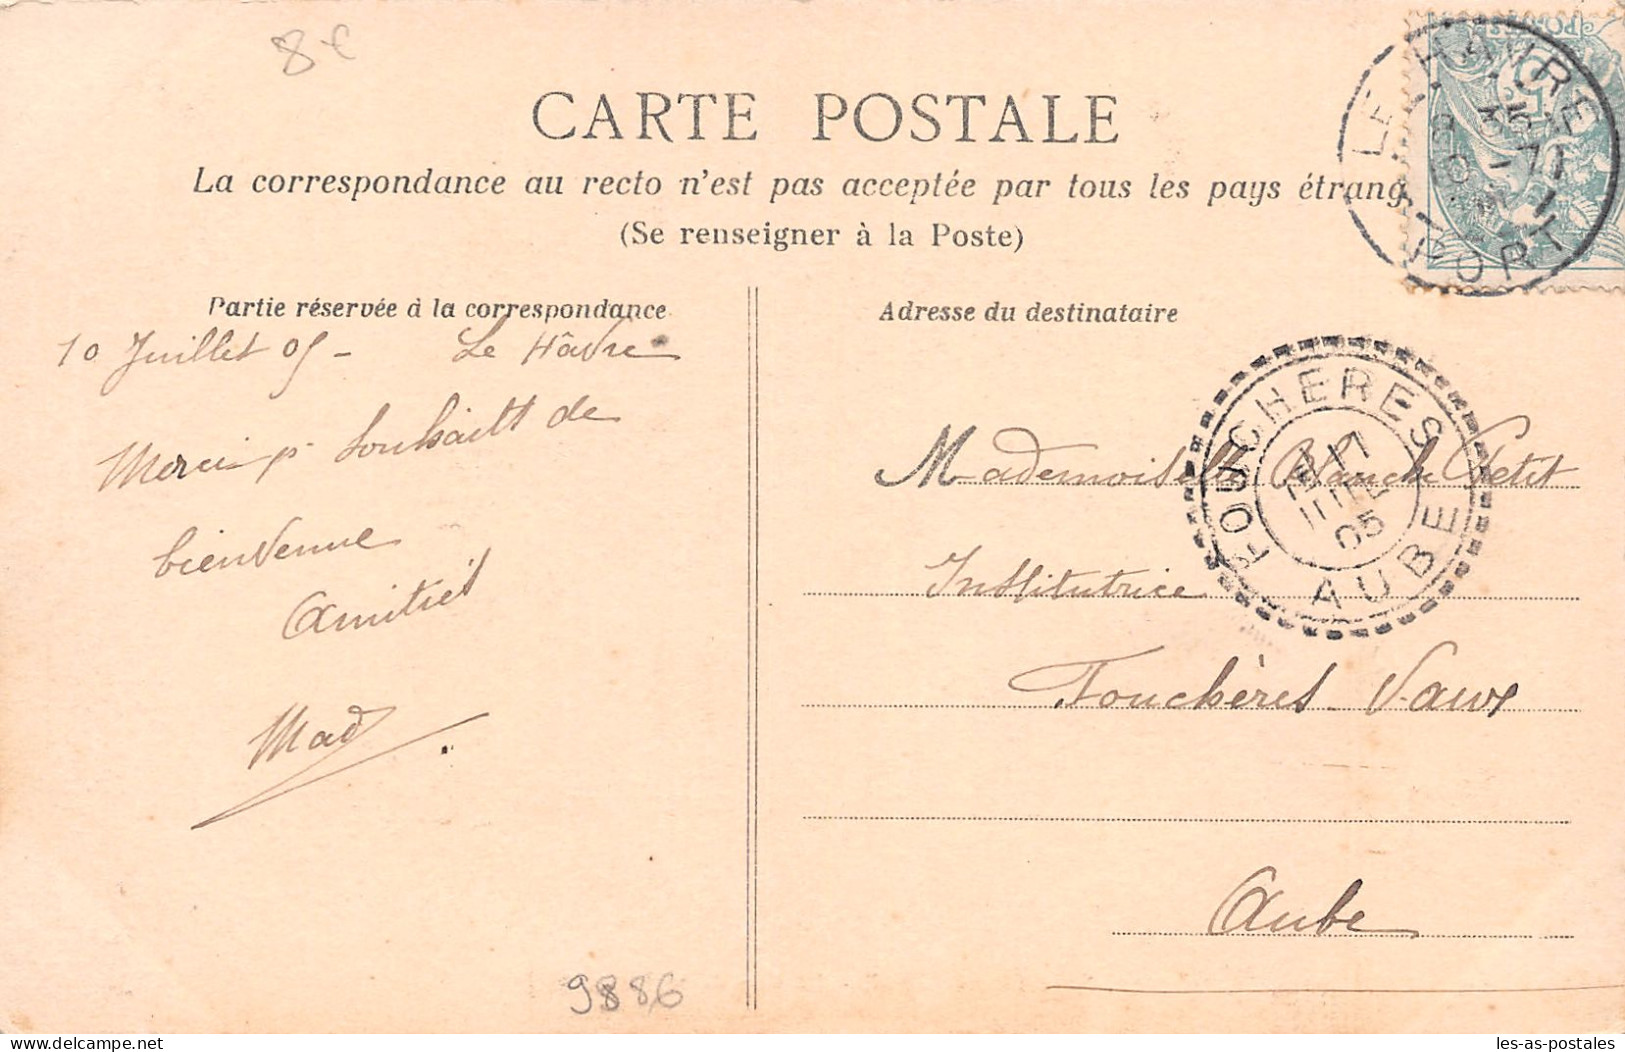 8€
CARTE POSTALE
La correspondance au recto n'est pas acceptée par tous les pays étrang
(Se renseigner à la Poste)
LE HAVRE
PORT
Partie réservée à la correspondance
Adresse du destinataire
10 Juillet 05 - Le Hâvre
Merci pr souhaits de
bienvenue
Amitiés
Mad
Mademoiselle Blanche Petit
Institutrice
Fouchères-Vaux
Aube
FOUCHERES
JUIL
05
AUBE
9886
les-as-postales